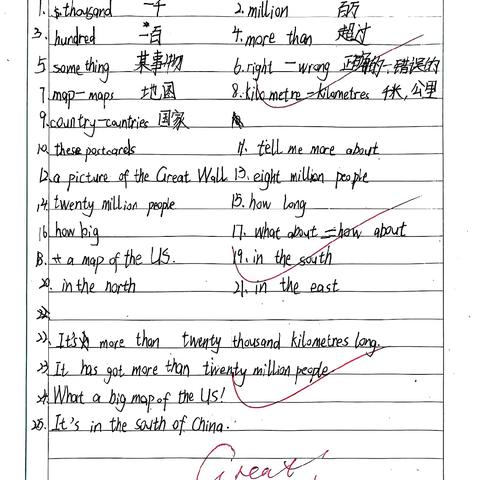 1. thousand 一千 2. million 百万
3. hundred 一百 4. more than 超过
5 something 某事物 6. right - wrong 正确的-错误的
7 map-maps 地图 8. kilometre = kilometres 千米,公里
9. country-countries 国家
10. these postcards 11. tell me more about
12. a picture of the Great Wall 13. eight million people
14. twenty million people 15. how long
16 how big 17. what about = how about
18. a map of the US. 19. in the south
20. in the north 21. in the east
22. It's more than twenty thousand kilometres long.
23 It has got more than twenty million people
24. What a big map of the US!
25. It's in the south of China.
Great!